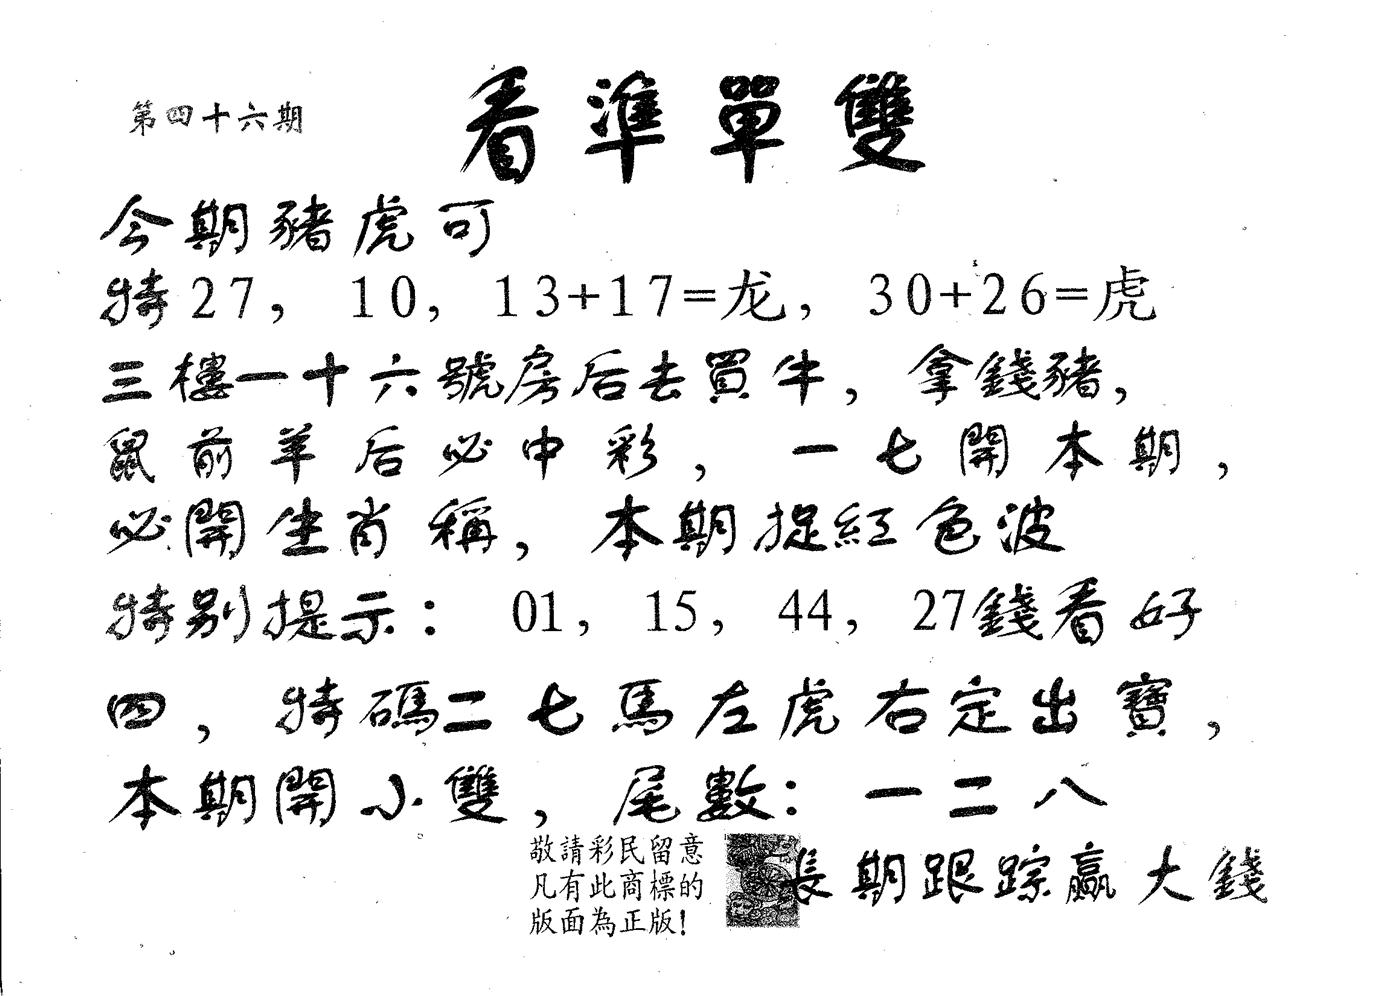 第四十六期
看準單雙
今期豬虎可
特27, 10, 13+17=龙, 30+26=虎
三樓一十六號房后去買牛,拿錢豬,
鼠前羊后必中彩,一七開本期,
必開生肖稱,本期捉紅色波
特别提示: 01, 15, 44, 27錢看好
四,特碼二七馬左虎右定出寶,
本期開小雙,尾數:一二八
敬請彩民留意
凡有此商標的
版面為正版!
長期跟踪赢大錢